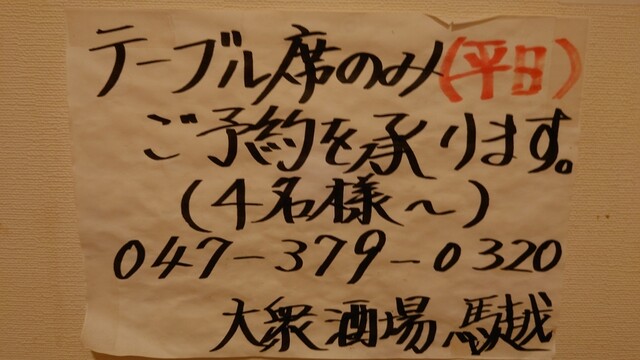 テーブル席のみ(平日)
ご予約を承ります。
(4名様~)
047-379-0320
大衆酒場 馬越